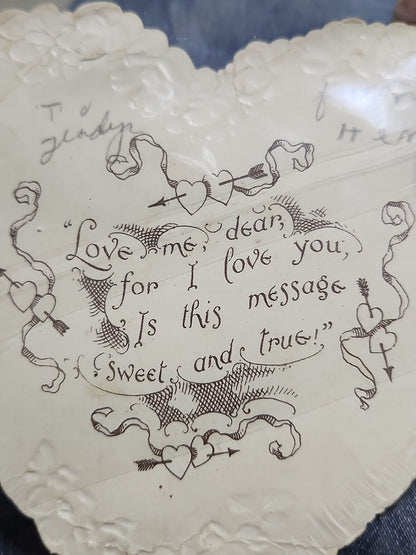 To
Gladys
"Love me, dear,
for I love you,
Is this message
sweet and true!"